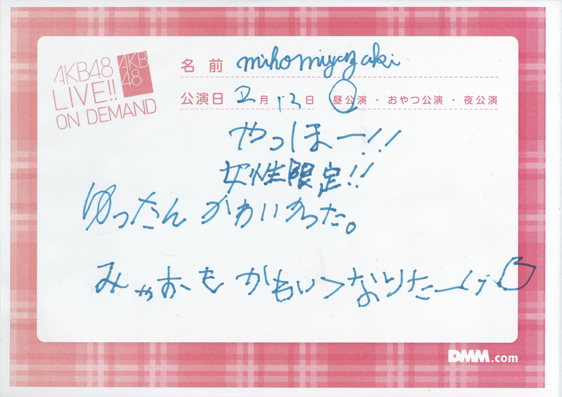 AKB48
LIVE!!
ON DEMAND
AKB
48
名前 miho miyazaki
公演日 月 12 日 昼公演・おやつ公演・夜公演
やっほー!!
女性限定!!
ゆったんかわいかった。
みゃおも なりたーい
DMM.com